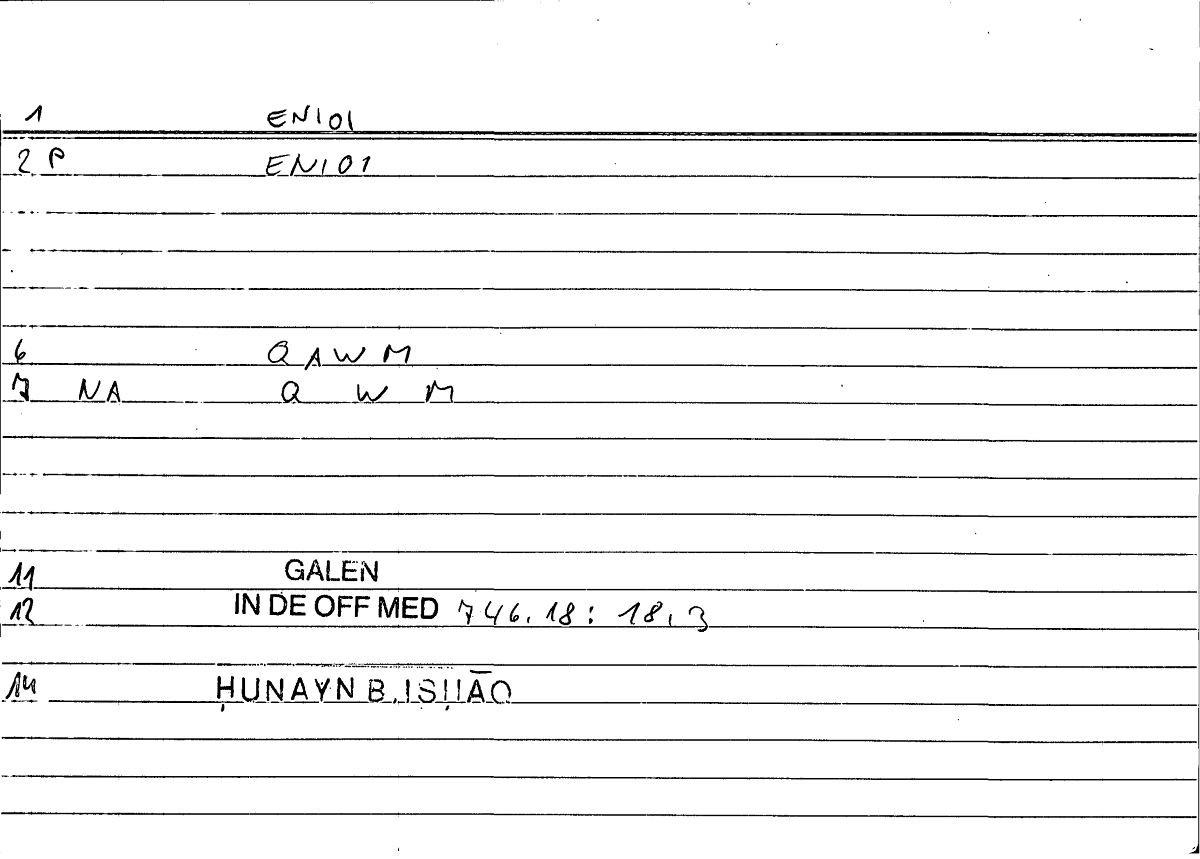 1 ENIOI
2 P ENIOI
6 QAWM
7 NA Q W M
11 GALEN
12 IN DE OFF MED 746.18: 18,3
14 ḤUNAYN B. ISḤĀQ